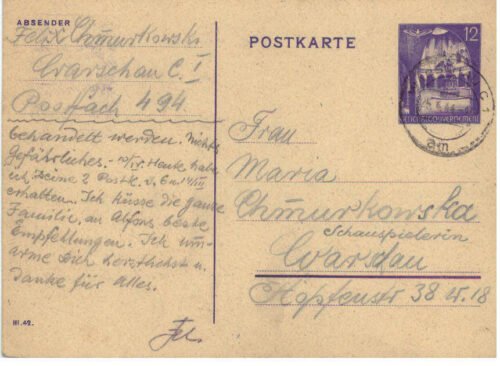 ABSENDER
Felix Chmurkowski
Warschau C. 1
Postfach 494
behandelt werden. Nichts
Gefährliches. Heute habe
ich Deine 2 Postk. v. 6 u. 14/III
erhalten. Ich küsse die ganze
Familie, an Alfons beste
Empfehlungen. Ich um-
arme Dich herzlichst u.
danke für Alles.
Fel.
III.42.
POSTKARTE
12
GENERALGOUVERNEMENT
Frau
Maria
Chmurkowska
Schauspielerin
Warschau
Hopfenstr 38 W. 18